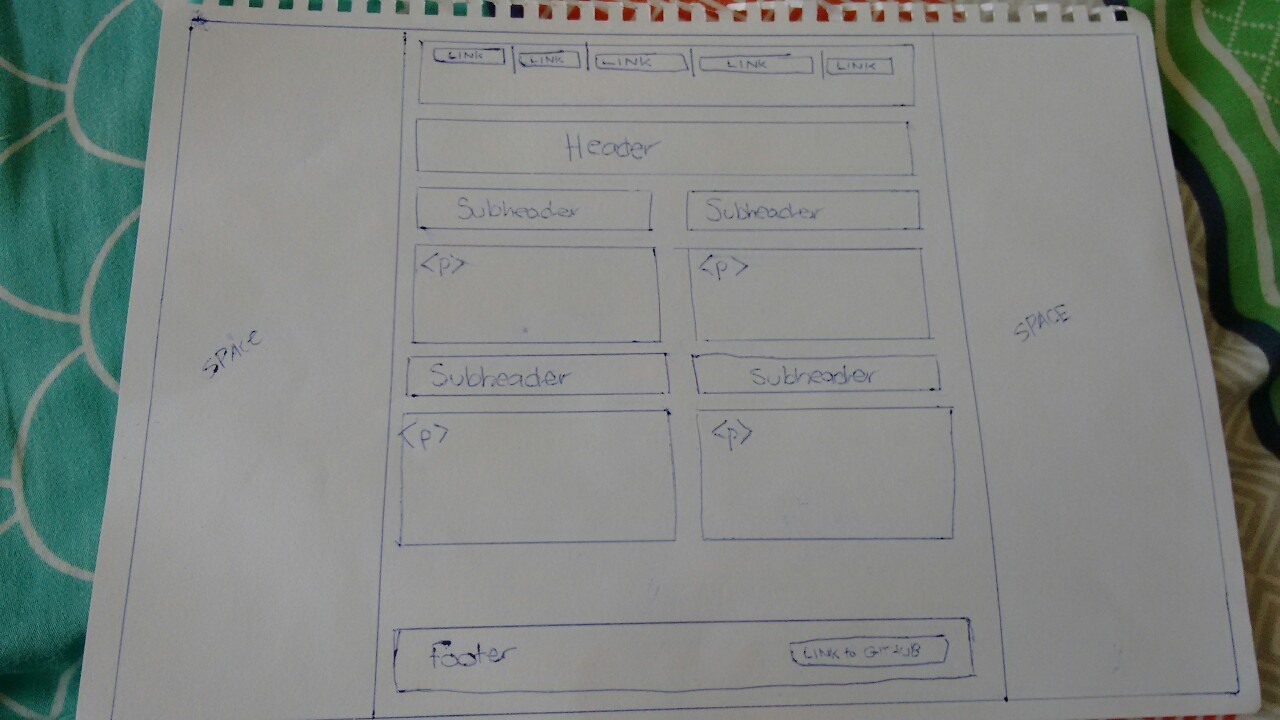 LINK LINK LINK LINK LINK
Header
Subheader Subheader
<p> <p>
SPACE SPACE
Subheader Subheader
<p> <p>
footer LINK to GitHUB